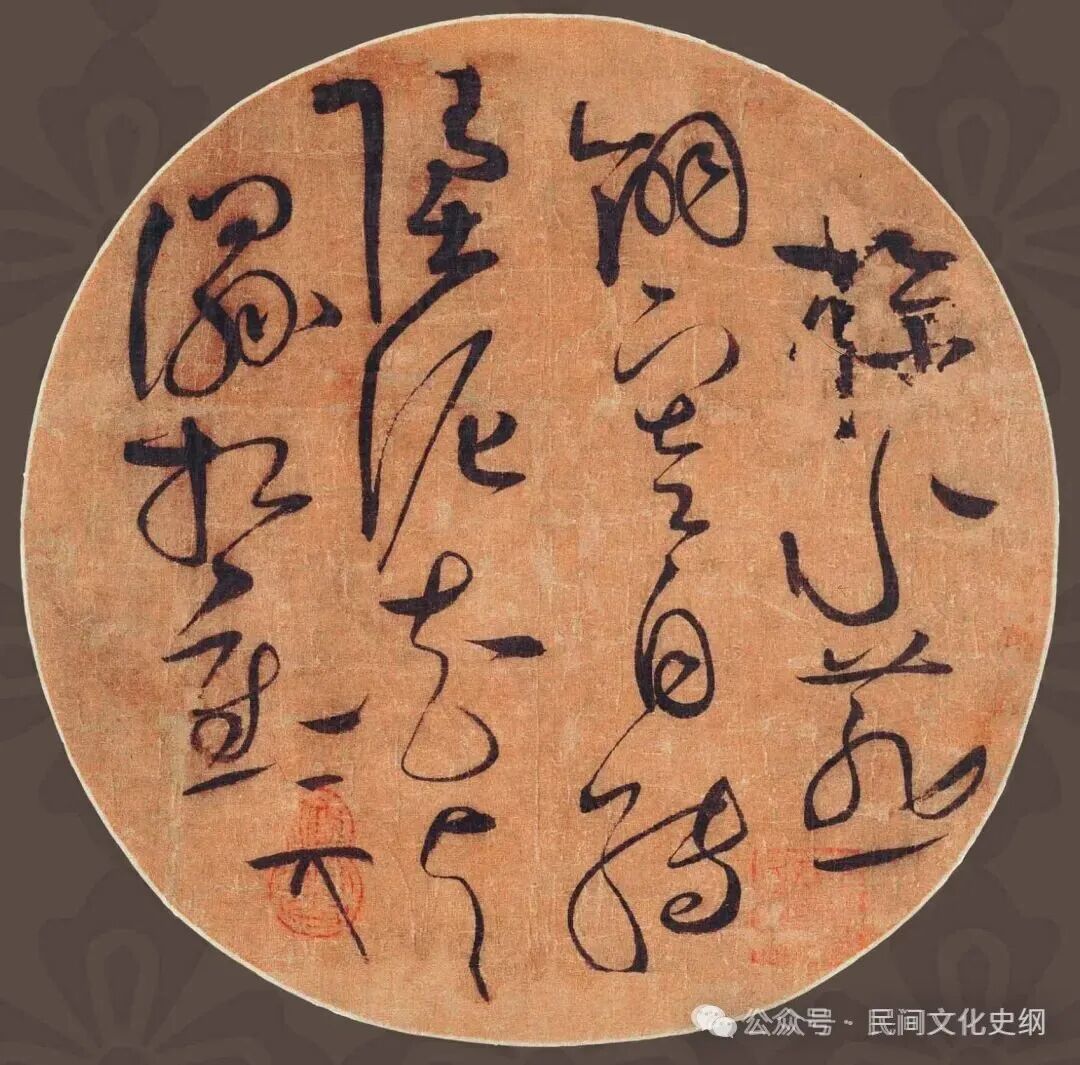 掠水燕
翎寒自轉
墮泥花片
濕相重
公众号·民间文化史纲